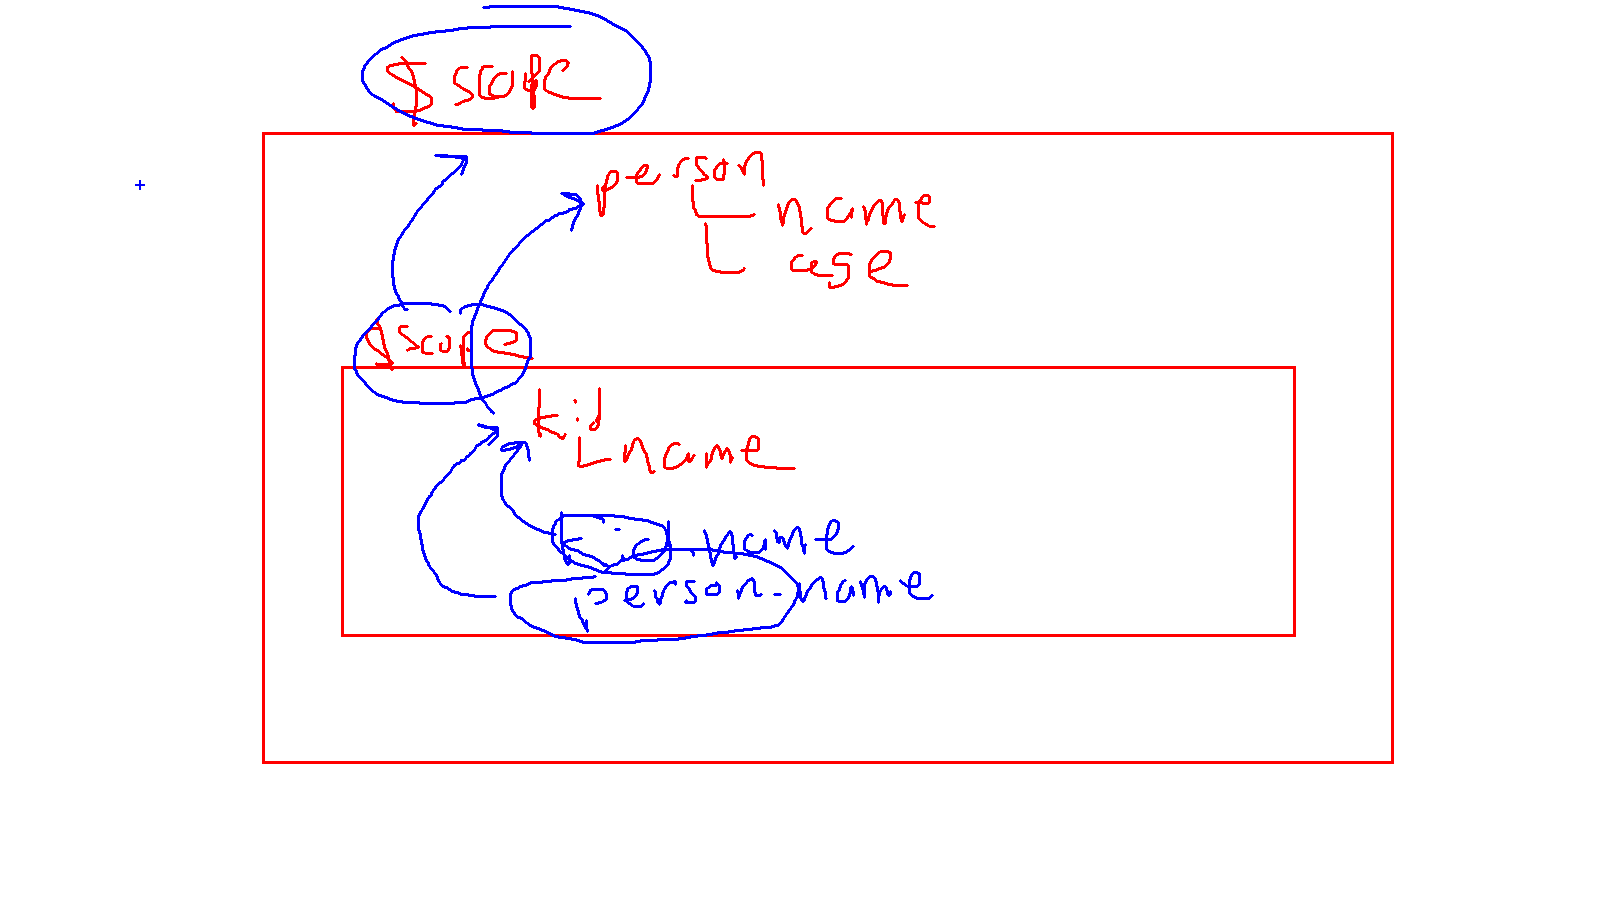 $scope
person
name
age
$scope
kid
name
kid.name
person.name